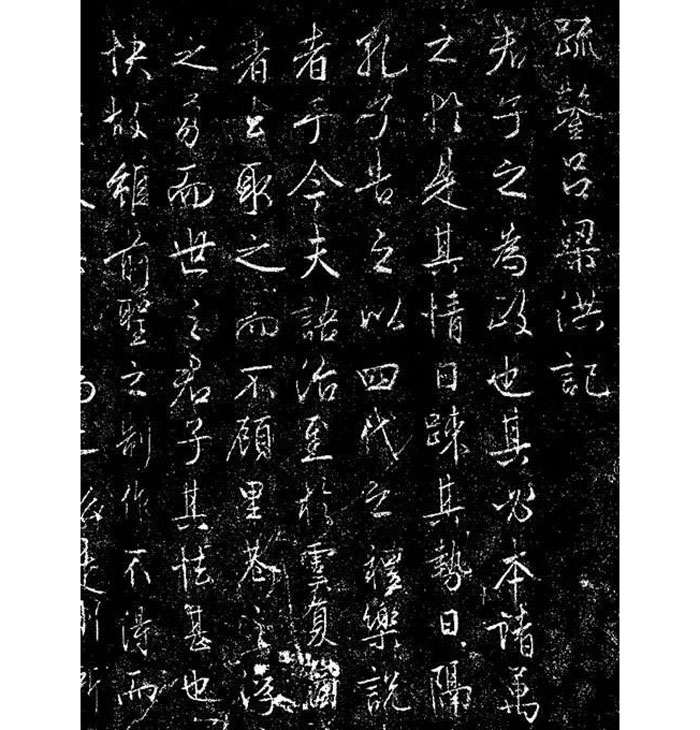 疏鑿呂梁洪記
君子之為政也其必本諸萬
之於是其情日疎其勢日隔
孔子告之以四代之禮樂說
者乎今夫語治至於虞夏
者取之而不顧里巷之浮
之而世之君子其怯甚也
快故雖前聖之制作不得而